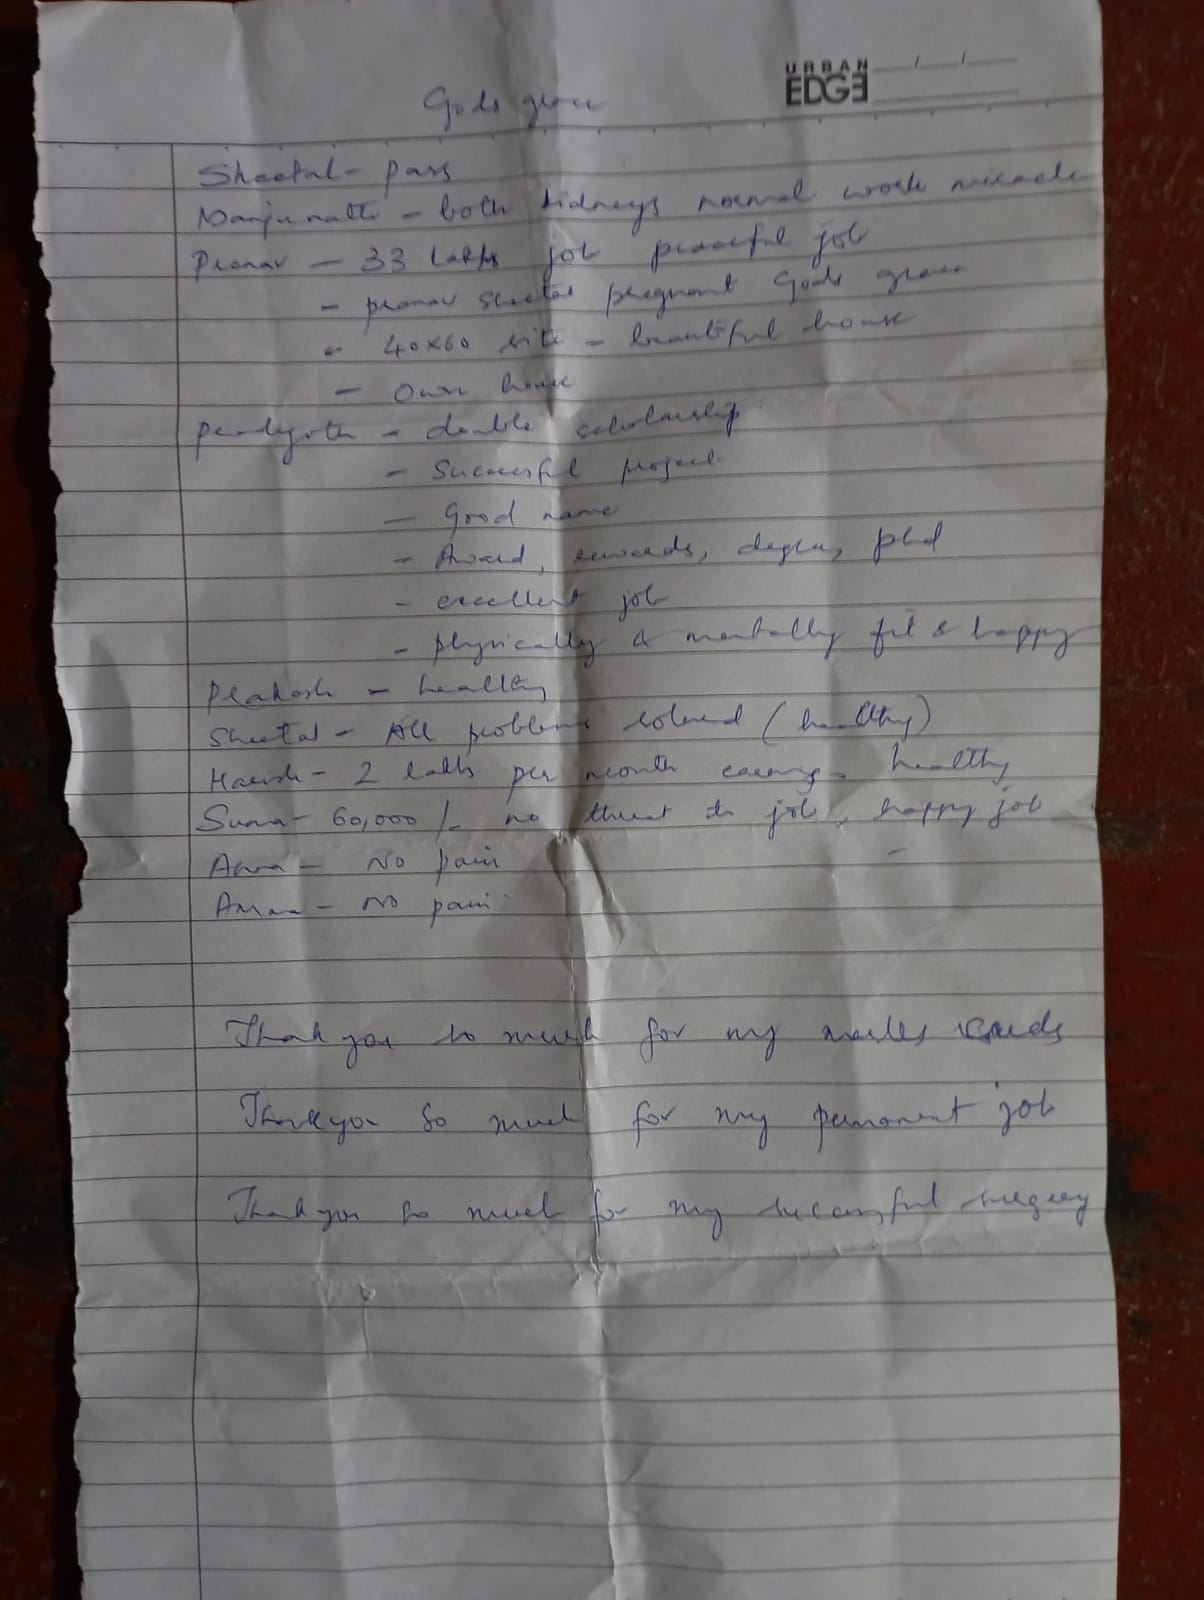 URBAN
EDGE
Gods grace
Sheetal - pass
Manjunath - both kidneys normal work miracle
Pranav - 33 lakhs job peaceful job
- pranav sheetal pregnant Gods grace
- 40x60 site - beautiful house
- own house
- double scholarship
- Successful project
- Good name
- Award, rewards, degree, phd
- excellent job
- physically & mentally fit & happy
Prakash - healthy
Sheetal - All problems solved (healthy)
Harish - 2 lakhs per month earning - healthy
Suma - 60,000/- no threat to job, happy job
- No pain
Amma - No pain
Thank you so much for my marks cards
Thank you so much for my permanent job
Thank you so much for my successful surgery